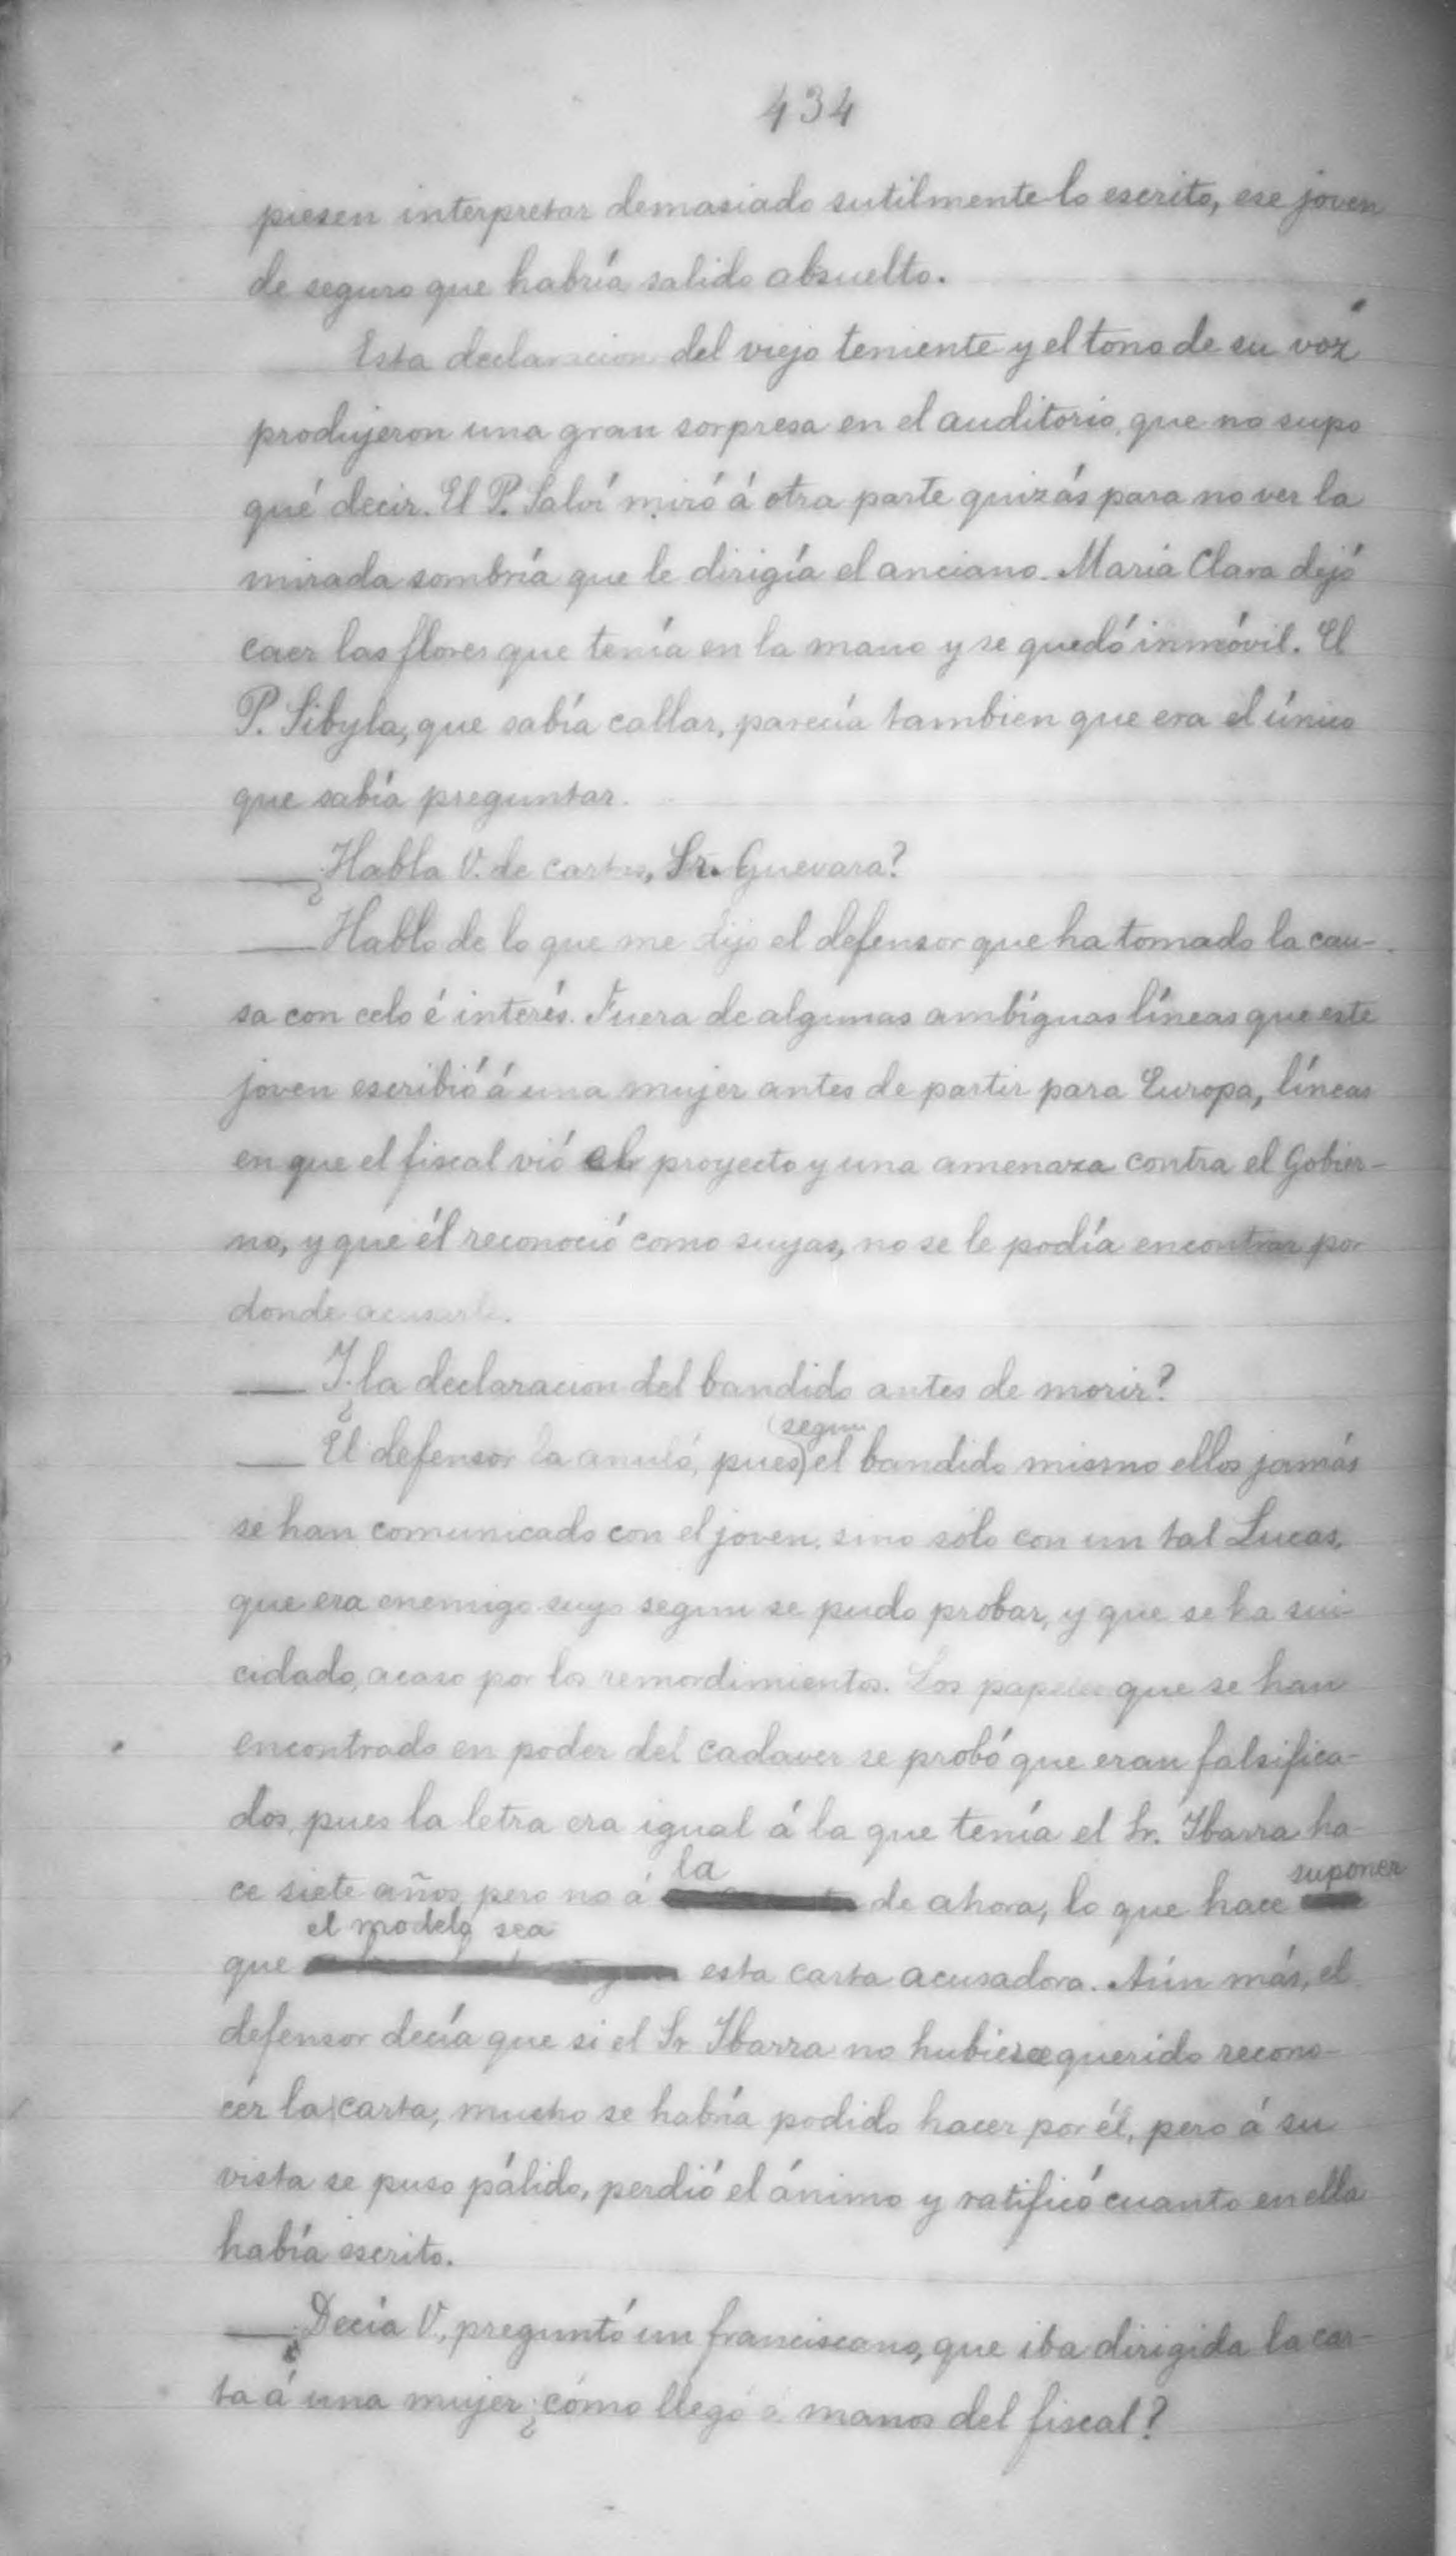 434
piesen interpretar demasiado sutilmente lo escrito, ese joven
de seguro que habría salido absuelto.
Esta declaracion del viejo teniente y el tono de su voz
produjeron una gran sorpresa en el auditorio, que no supo
qué decir. El P. Salví miró á otra parte quizás para no ver la
mirada sombría que le dirigía el anciano. María Clara dejó
caer las flores que tenía en la mano y se quedó inmóvil. El
P. Sibyla, que sabía callar, parecía tambien que era el único
que sabía preguntar.
— ¿Habla V. de cartas, Sr. Guevara?
— Hablo de lo que me dijo el defensor que ha tomado la cau-
sa con celo é interés. Fuera de algunas ambíguas líneas que este
joven escribió á una mujer antes de partir para Europa, líneas
en que el fiscal vió el proyecto y una amenaza contra el Gobier-
no, y que él reconoció como suyas, no se le podía encontrar por
donde acusarle.
— ¿Y la declaracion del bandido antes de morir?
— El defensor la anuló, pues (segun el bandido mismo ellos jamás
se han comunicado con el joven, sino sólo con un tal Lucas,
que era enemigo suyo segun se pudo probar, y que se ha sui-
cidado, acaso por los remordimientos. Los papeles que se han
encontrado en poder del cadaver se probó que eran falsifica-
dos, pues la letra era igual á la que tenía el Sr. Ibarra ha-
ce siete años, pero no á la de ahora, lo que hace suponer
que el modelo sea esta carta acusadora. Aún más, el
defensor decía que si el Sr. Ibarra no hubiese querido recono-
cer la carta, mucho se habría podido hacer por él, pero á su
vista se puso pálido, perdió el ánimo y ratificó cuanto en ella
había escrito.
— Decía V., preguntó un franciscano, que iba dirigida la car-
ta á una mujer; ¿cómo llegó á manos del fiscal?